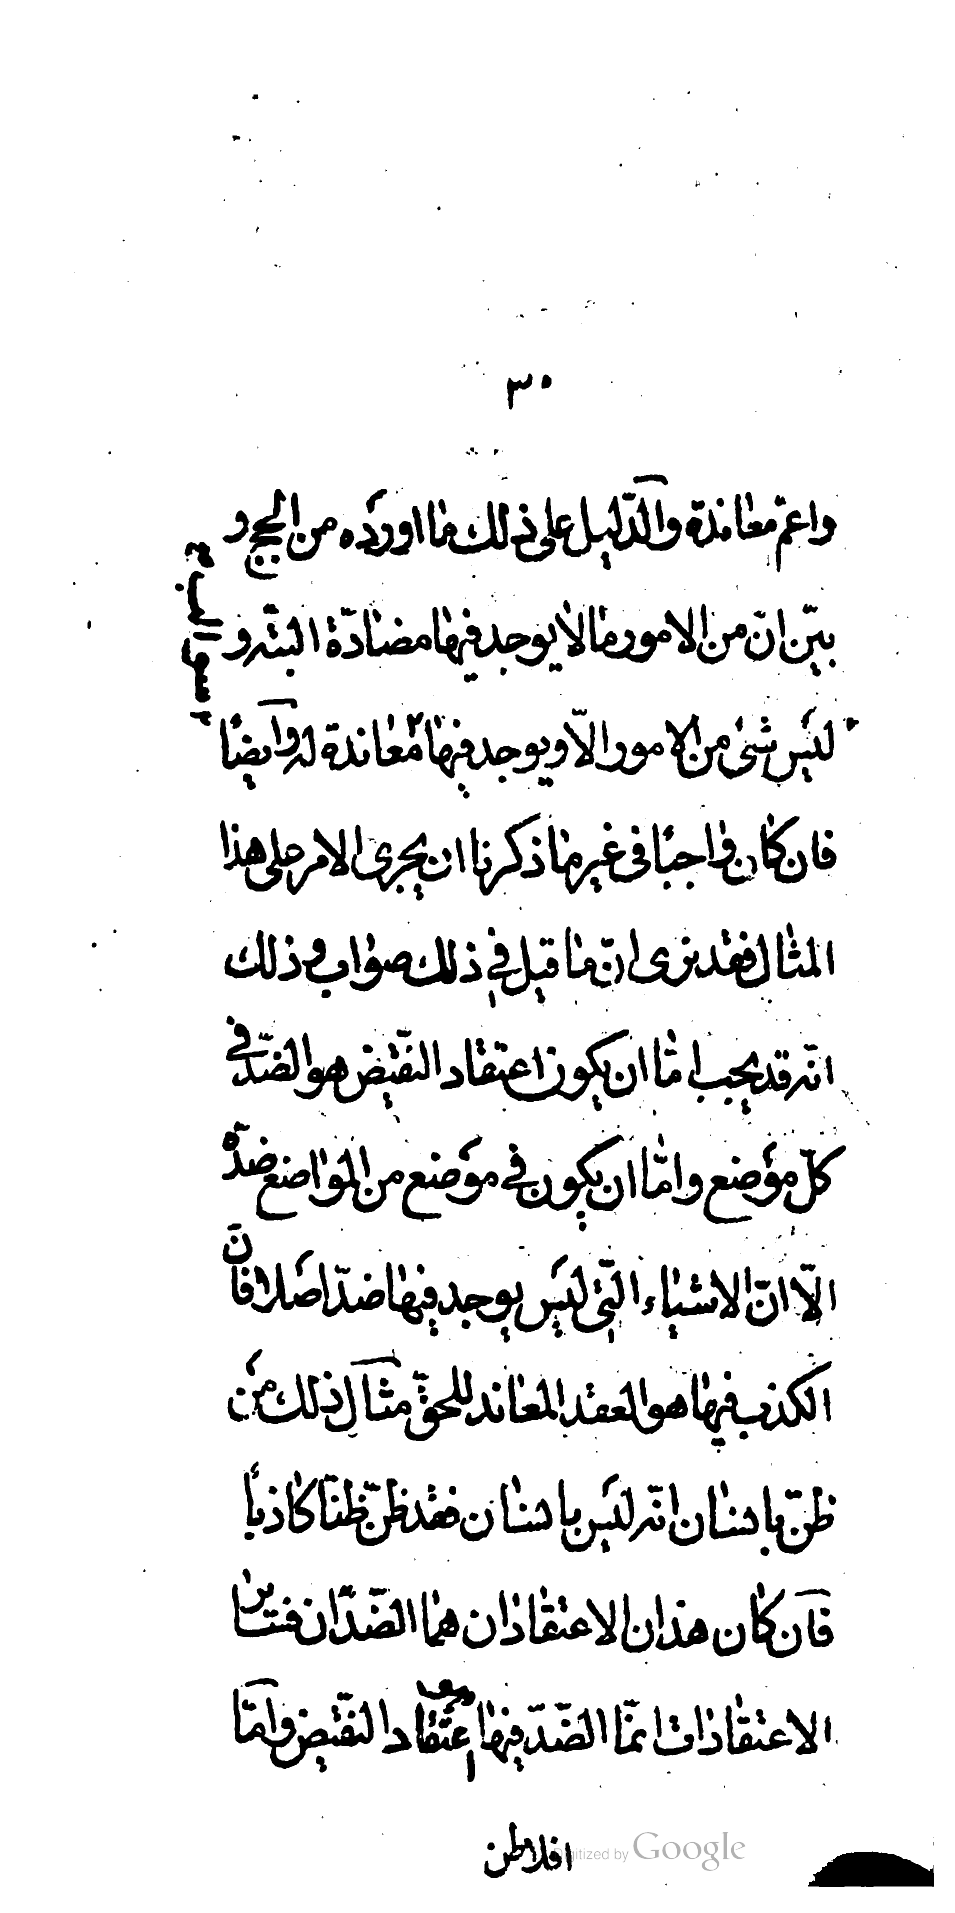 ٣٠
واعمّ معاندة والدّليل على ذلك ما اورده من الحجج و
بيّن انّ من الامور ما لا يوجد فيها مضادّة البتّه و
ليس شئ من الامور الّا ويوجد فيها معاندة له وايضًا
فان كان واجبًا فى غير ما ذكرنا ان يجرى الامر على هذا
المثال فقد نرى انّ ما قيل فى ذلك صواب وذلك
انّه قد يجب امّا ان يكون اعتقاد النقيض هو الضدّ فى
كلّ موضع وامّا ان يكون فى موضع من المواضع ضدّه
الّا انّ الاشياء الّتى ليس يوجد فيها ضدّ اصلا فانّ
الكذب فيها هو العقد المعاند للحقّ مثال ذلك من
ظنّ بانسان انّه ليس بانسان فقد ظنّ ظنّا كاذبًا
فان كان هذان الاعتقادان هما الضّدّان فسائر
الاعتقادات انّما الضّدّ فيها هو اعتقاد النقيض وامّا
افلاطن
Digitized by Google